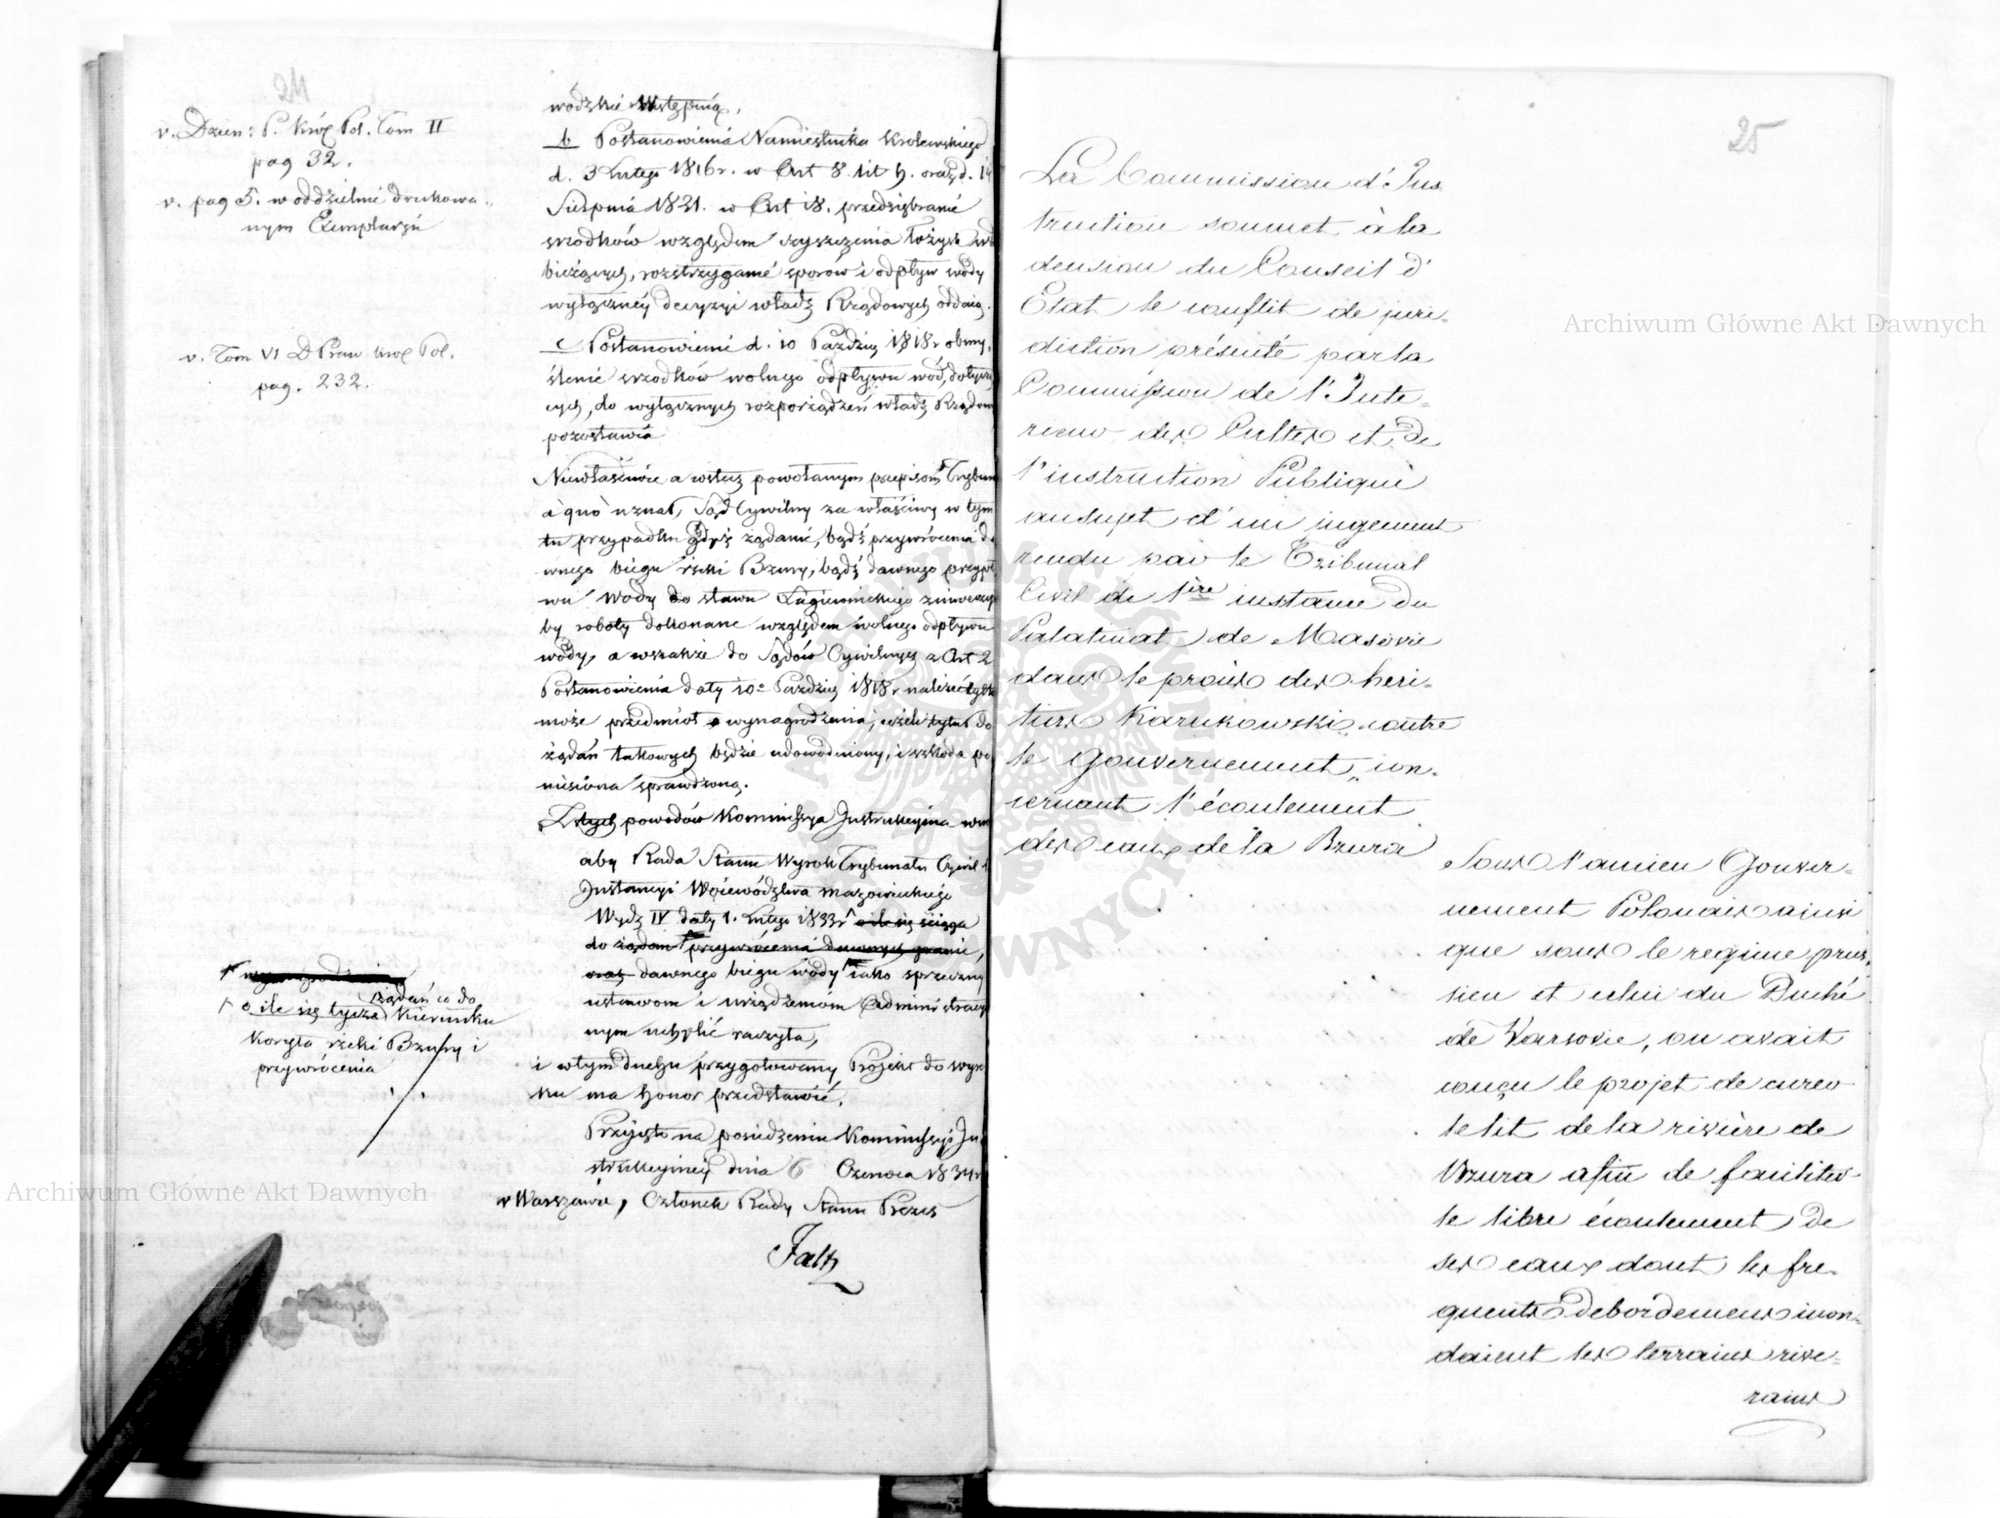 24
v. Dzien: P. Król Pol. Tom II
pag 32.
v. pag 5. w oddzielnie drukowa-
nym Exemplarzu
v. Tom VI D Praw Król Pol.
pag. 232.
^ o ile się tycze żądań co do
Kierunku
Koryta rzeki Bzury i
przywrócenia
wódzkie
b Postanowienia Namiestnika Krolewskiego
d. 3 Lutego 1816 r. w Art 8. lit h. oraz d. 14
Sierpnia 1821. w Art 18. przedsiębranie
srodków względem szyszczenia łożysk
bieżących, rozstrzyganie sporów i odpływ wody
wyłączney decyzyi władz Rządowych oddaią.
c Postanowienie d. 10 Paździer 1818 r obmy-
ślenie srzodków wolnego odpływu wód, dotycz
cych, do wyłącznych rozporządzeń władz Rządow
pozostawia
Niewłaściwie a wstecz powołanym przepisom Trybun
à quo uznał, Sąd Cywilny za właściwy w tym
tu przypadku gdyż żądanie, bądź przywrócenia da
wnego biegu rzeki Bzury, bądź dawnego przypł
wu wody do stawu Łagiewnickiego zniweczył
by roboty dokonane względem wolnego odpływu
wody, a wszakże do Sądów Cywilnych z Art 2
Postanowienia daty 10o Paździer 1818 r należeć tylko
może przedmiot wynagrodzenia, jeżeli tytuł do
żądań takowych będzie udowodniony, i szkoda po
niesiona sprawdzoną.
Z tych powodów Kommissya Instrukcyina
aby Rada Stanu Wyrok Trybunału Cywil
Instancyi Wojewódzlwa mazowieckiégo
Wydz IV daty 1. Lutego 1833 r ^ o ile się ściąga
do żądań przywrócenia dawnych granic,
oraz dawnego biegu wody jako sprzeczny
ustawom i urządzeniom Administracy
nym uchylić raczyła,
i w tym duchu przygotowany Projekt do wyro
ku ma honor przedstawić.
Przyjęto na posiedzeniu Kommissyi In
strukcyiney dnia 6 Czerwca 1834 r
w Warszawie, Członek Rady Stanu Prezes
Faltz
25
La Commission d'Ins
truction soumet à la
decision du Conseil d'
Etat le conflit de juri-
diction présenté par la
Commission de l'Inte-
rieur des Cultes et de
l'instruction Publique
au sujet d'un jugement
rendu par le Tribunal
Civil de 1ère instance du
Palatinat de Masovie
dans le procès des heri-
tiers Karnkowski contre
le Gouvernement, con-
cernant l'écoulement
des eaux de la Bzura
Sous l'ancien Gouver-
nement Polonais ainsi
que sous le regime prus-
sien et celui du Duché
de Varsovie, on avait
conçu le projet de curer
le lit de la rivière de
Bzura afin de faciliter
le libre écoulement de
ses eaux dont les fre-
quents debordemens inon-
daient les terrains rive-
rains
Archiwum Główne Akt Dawnych
Archiwum Główne Akt Dawnych